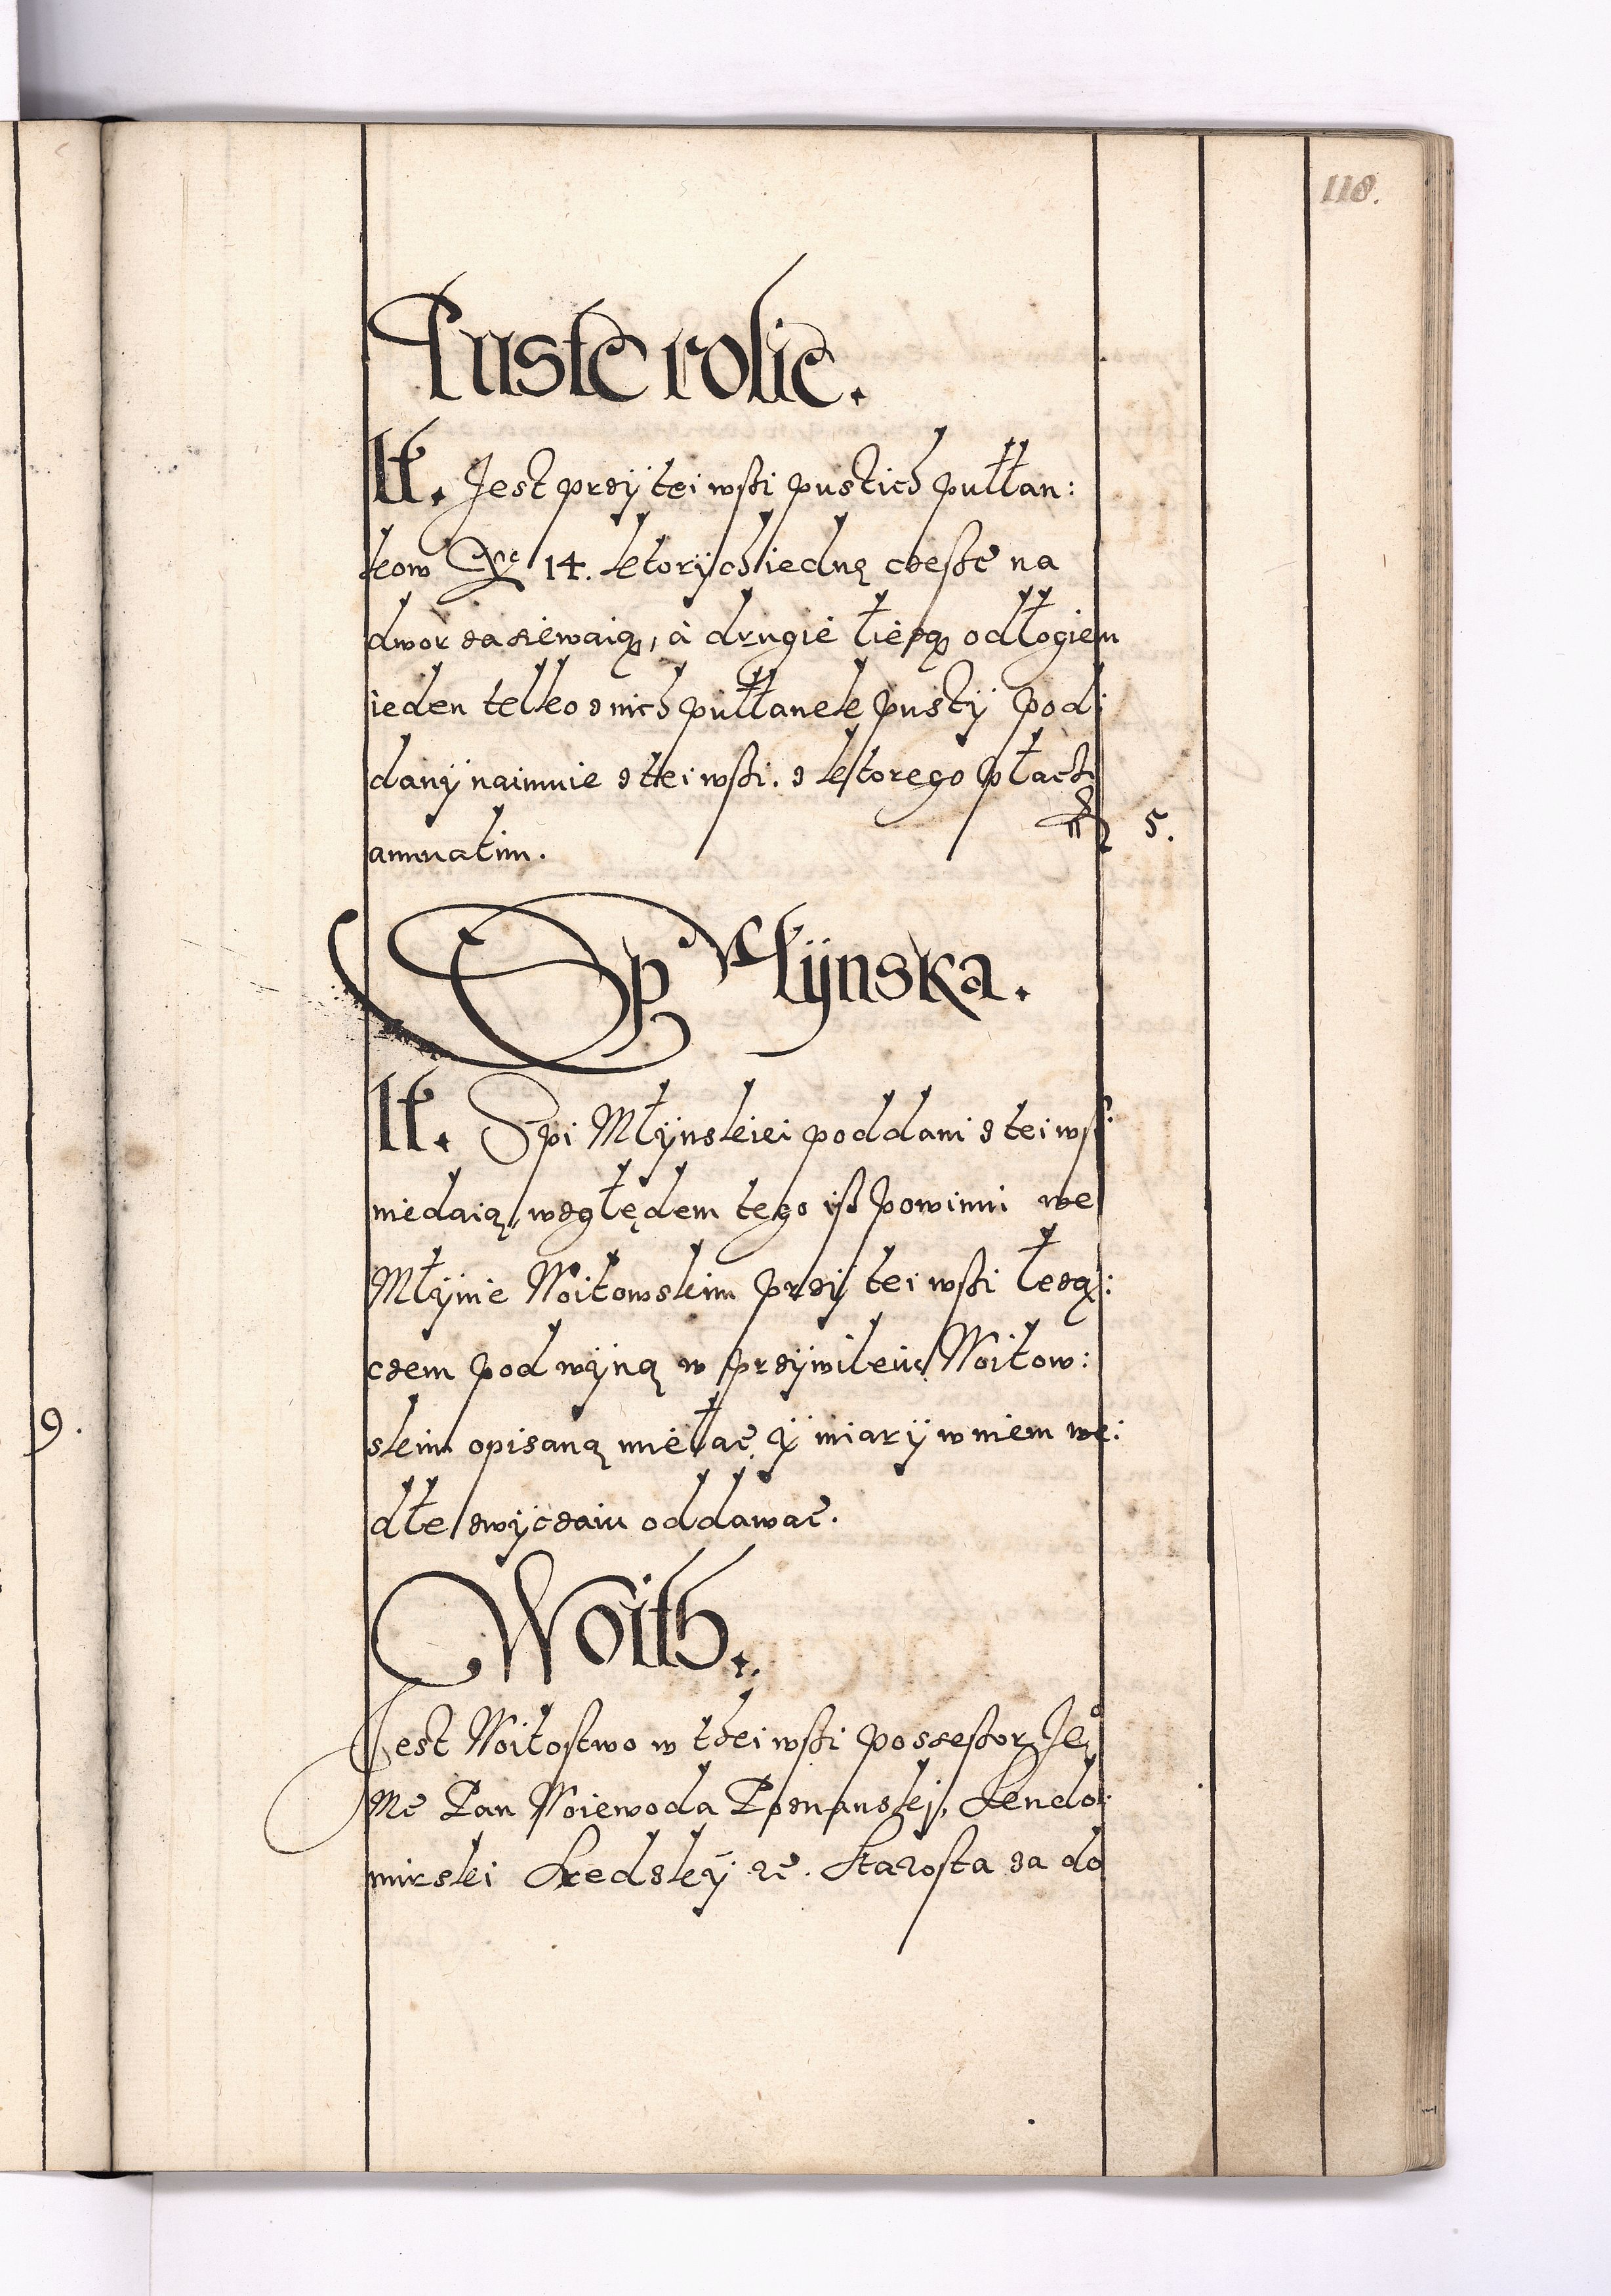 118.
Puste rolie.
It. Jest przÿ tei wsſi pustich pułłan:
kow Nro 14. ktorÿch iedną częsć na
dwor zasiewaią, à drugie lieżą odłogiem
ieden telko z nich pułłanek pustÿ pod:
danÿ naimuie z tei wsſi. z ktorego płaci
annuatim. 5.
Sp Młÿnska.
It. Spi Młÿnskiei poddani z tei wsſi
niedaią, względem tego iß powinni we
Młÿnie Woitowskim przÿ tei wsſi leżą:
czem pod wÿną w przÿwileiu Woitow:
skim opisaną mielać ÿ miarÿ w niem we:
dle zwÿczaiu oddawać.
Woith.
Jest Woitostwo w thei wsſi possessor Je
Mć Pan Woiewoda Poznanski, Sendo:
mirski Sredskÿ etc. Starosta za do
9.